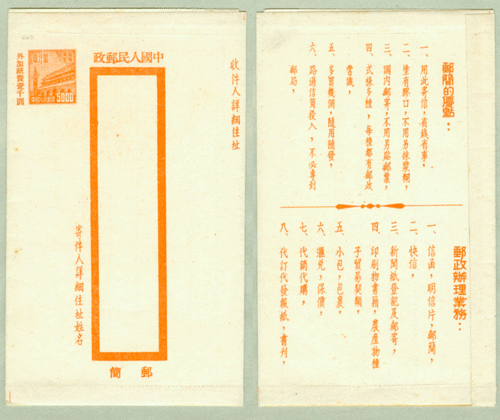 中國人民郵政
5000
外加紙費壹千圓
收件人詳細住址
寄件人詳細住址姓名
郵簡
郵簡的優點：
一、用此寄信，省錢省事，
二、塗有膠口，不用另抹漿糊，
三、國內郵寄，不用另貼郵票，
四、式樣多種，每種都有郵政
常識，
五、多買幾個，隨用隨發，
六、路過信筒投入，不必專到
郵局，
郵政辦理業務：
一、信函，明信片，郵簡，
二、快信，
三、新聞紙登記及郵寄，
四、印刷物書籍，農產物種
子貿易契類，
五、小包，包裹，
六、滙兌，保價，
七、代銷代購，
八、代訂代發報紙，書刊，